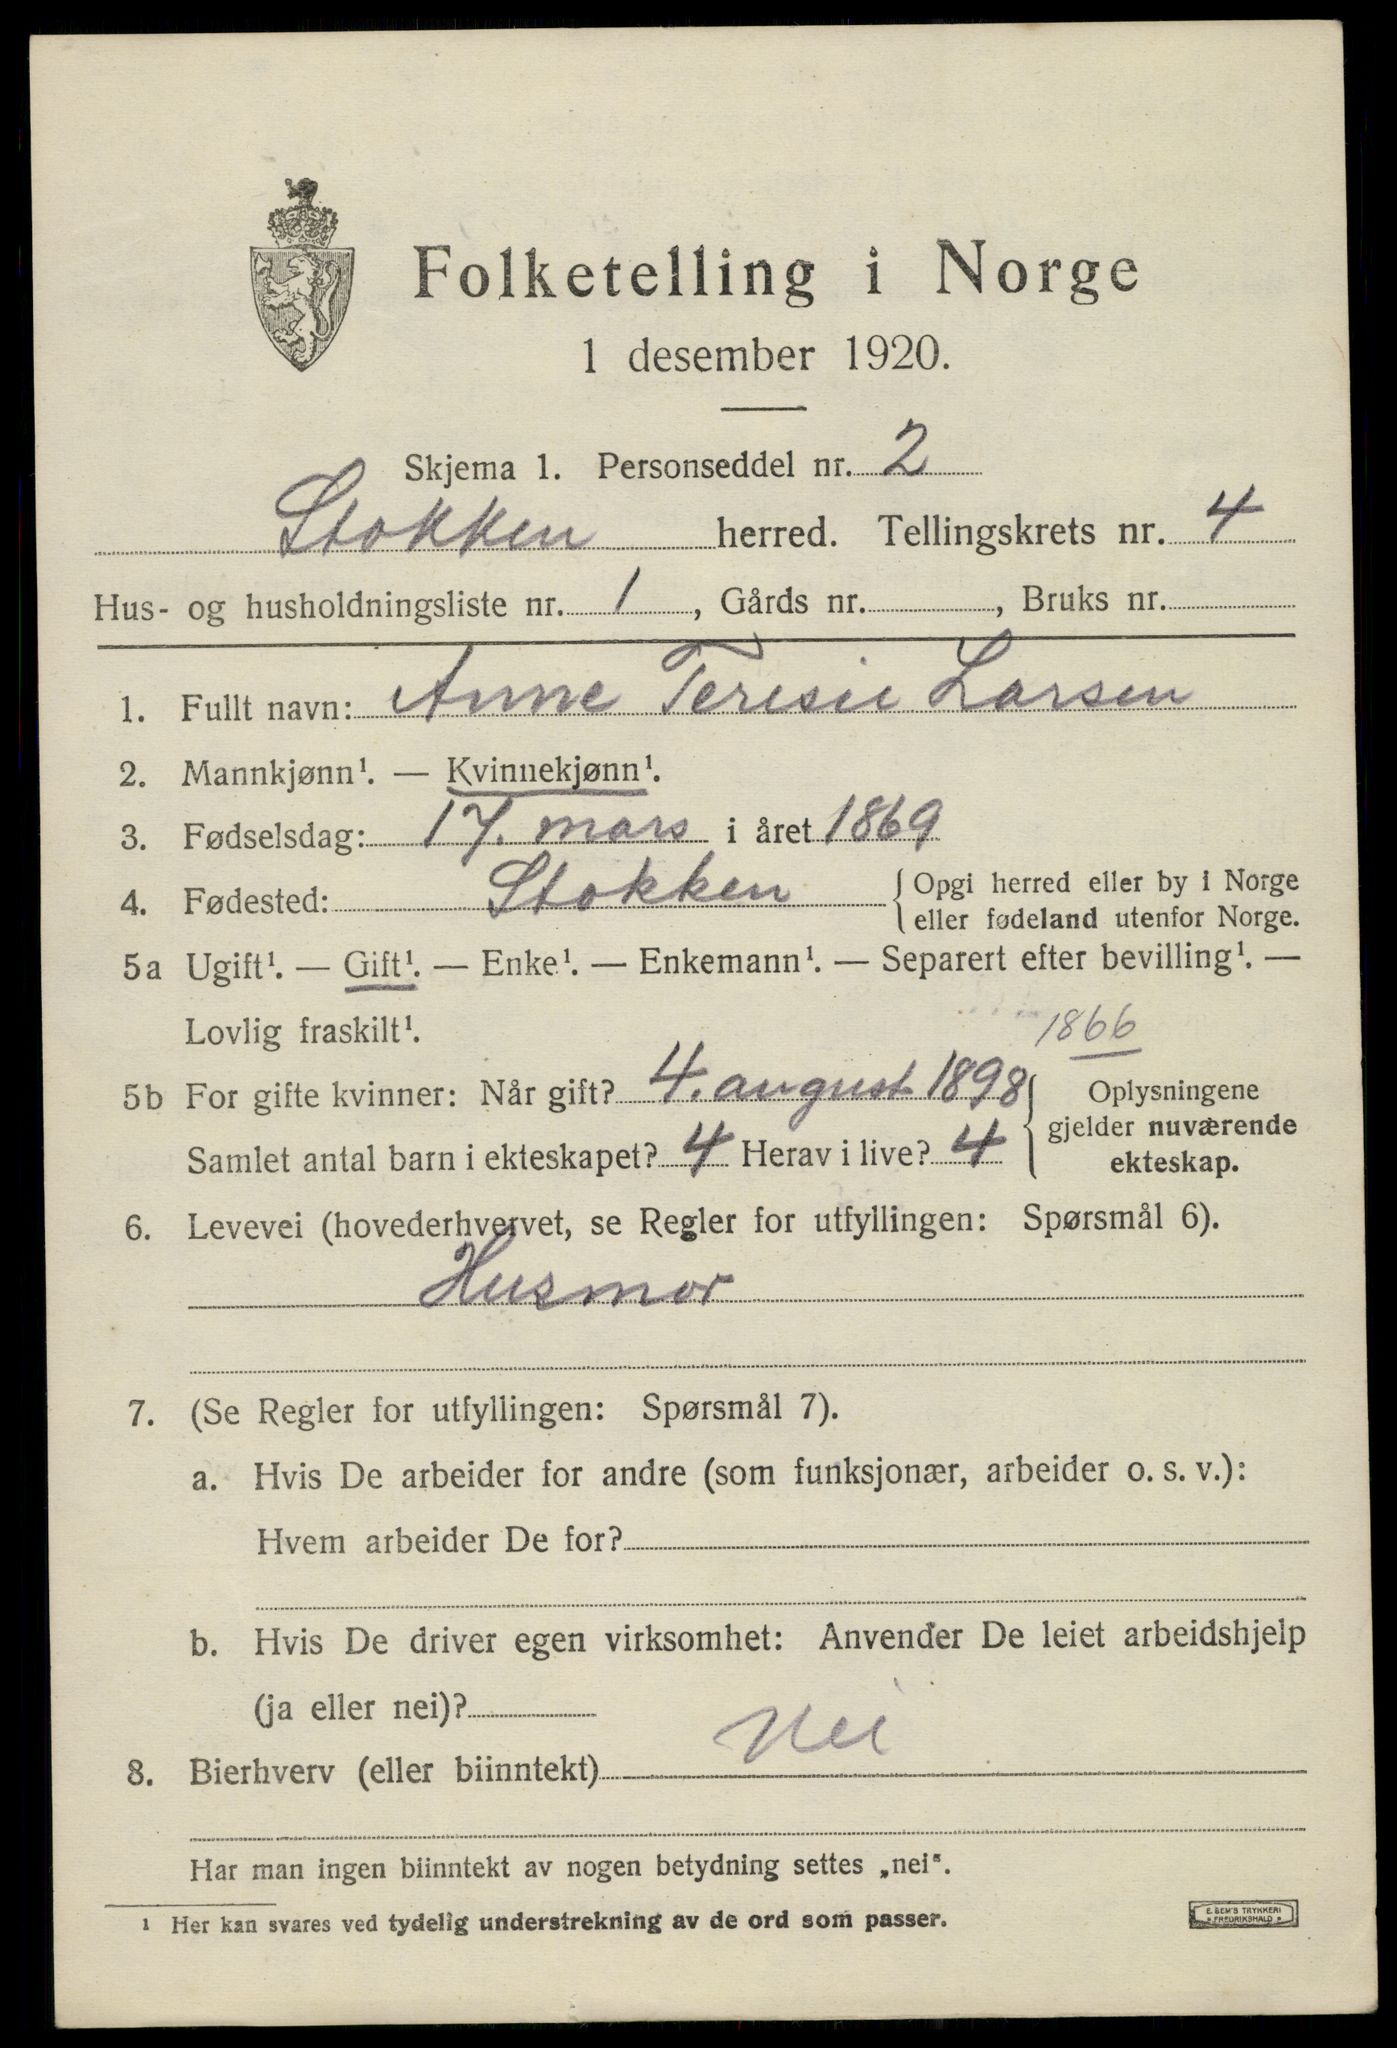 Folketelling i Norge
1 desember 1920.
Skjema 1. Personseddel nr. 2
Stokken herred. Tellingskrets nr. 4
Hus- og husholdningsliste nr. 1, Gårds nr. , Bruks nr.
1. Fullt navn: Anne Teresie Larsen
2. Mannkjønn¹. — Kvinnekjønn¹.
3. Fødselsdag: 17. mars i året 1869
4. Fødested: Stokken {Opgi herred eller by i Norge
eller fødeland utenfor Norge.
5a Ugift¹. — Gift¹. — Enke¹. — Enkemann¹. — Separert efter bevilling¹. —
Lovlig fraskilt¹.
1866
5b For gifte kvinner: Når gift? 4. august 1898 { Oplysningene
gjelder nuværende
Samlet antal barn i ekteskapet? 4 Herav i live? 4
ekteskap.
6. Levevei (hovederhvervet, se Regler for utfyllingen: Spørsmål 6).
Husmor
7. (Se Regler for utfyllingen: Spørsmål 7).
a. Hvis De arbeider for andre (som funksjonær, arbeider o. s. v.):
Hvem arbeider De for?
b. Hvis De driver egen virksomhet: Anvender De leiet arbeidshjelp
(ja eller nei)?
8. Bierhverv (eller biinntekt) Nei
Har man ingen biinntekt av nogen betydning settes „nei".
¹ Her kan svares ved tydelig understrekning av de ord som passer.
E. SEM'S TRYKKERI
FREDRIKSHALD